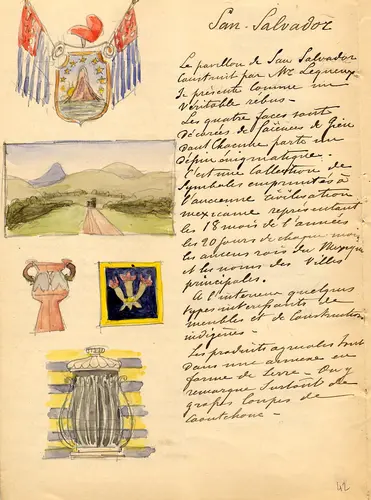 San-Salvador
Le pavillon de San Salvador
construit par Mr Lequeux
se présente comme un
véritable rébus -
Les quatre faces sont
décorées de faïences de Gien
dont chacune porte un
dessin énigmatique.
C'est une collection de
symboles empruntés à
l'ancienne civilisation
mexicaine représentant
les 18 mois de l'année
les 20 jours de chaque mois
les anciens rois du Mexique
et les noms des villes
principales.
A l'intérieur quelques
types intéressants de
meubles et de constructions
indigènes -
Les produits agricoles sont
dans une annexe en
forme de serre - On y
remarque surtout de
grosses loupes de
caoutchouc -
42